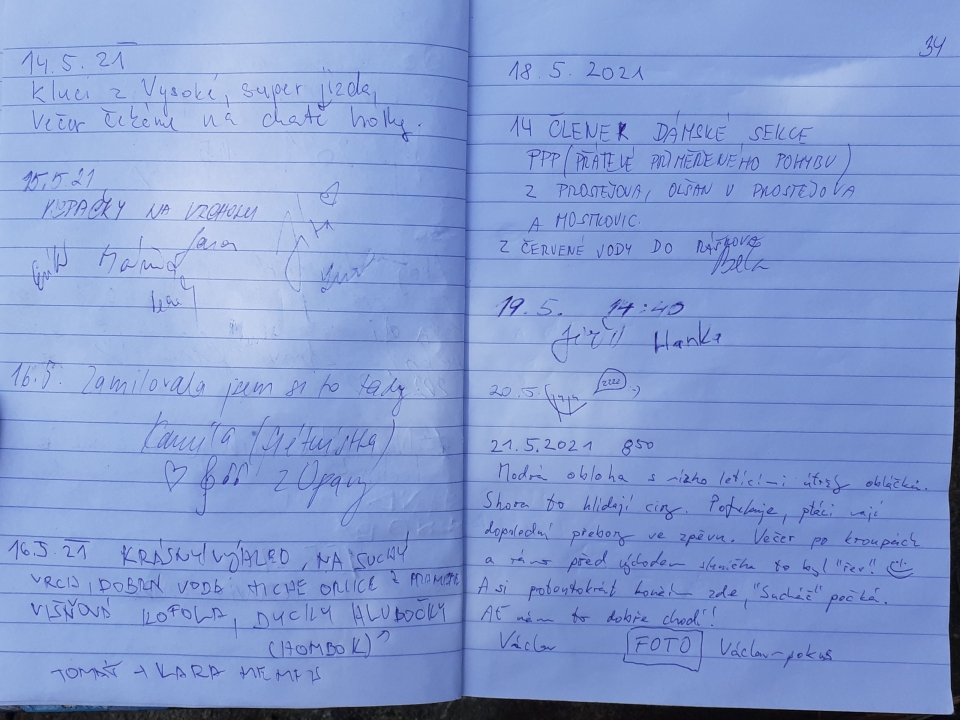 14.5.21
Kluci z Vysoké, super jízda,
Večer čekáme na chatě holky.
15.5.21
NA VRCHOLU
Jana
16.5. Zamilovala jsem si to tady
Kamila
z Opavy
16.5.21 KRÁSNÝ VÝHLED, NA SUCHÝ
VRCH, DOBRÁ VODA TICHÉ ORLICE Z PRAMENE
VIŠŇOVÁ KOFOLA, DUCKY HLUBOČKY
(HOMBOK)
TOMÁŠ + KARA
34
18.5.2021
14 ČLENEK DÁMSKÉ SEKCE
PPP (PŘÁTELÉ PŘIMĚŘENÉHO POHYBU)
Z PROSTĚJOVA, OLŠAN U PROSTĚJOVA
A MOSTKOVIC.
Z ČERVENÉ VODY DO
19.5. 14:40
Jiří Hanka
20.5.
zzzz
21.5.2021 850
Modrá obloha s nízko letícími útržky obláčků.
Shora to hlídají ciry. Pofukuje, ptáci mají
dopolední přebory ve zpěvu. Večer po kroupách
a ráno před východem sluníčka to byl "řev"!
A si potentokrát končím zde, "Sucháč" počká.
Ať nám to dobře chodí!
Václav FOTO Václav-pokus